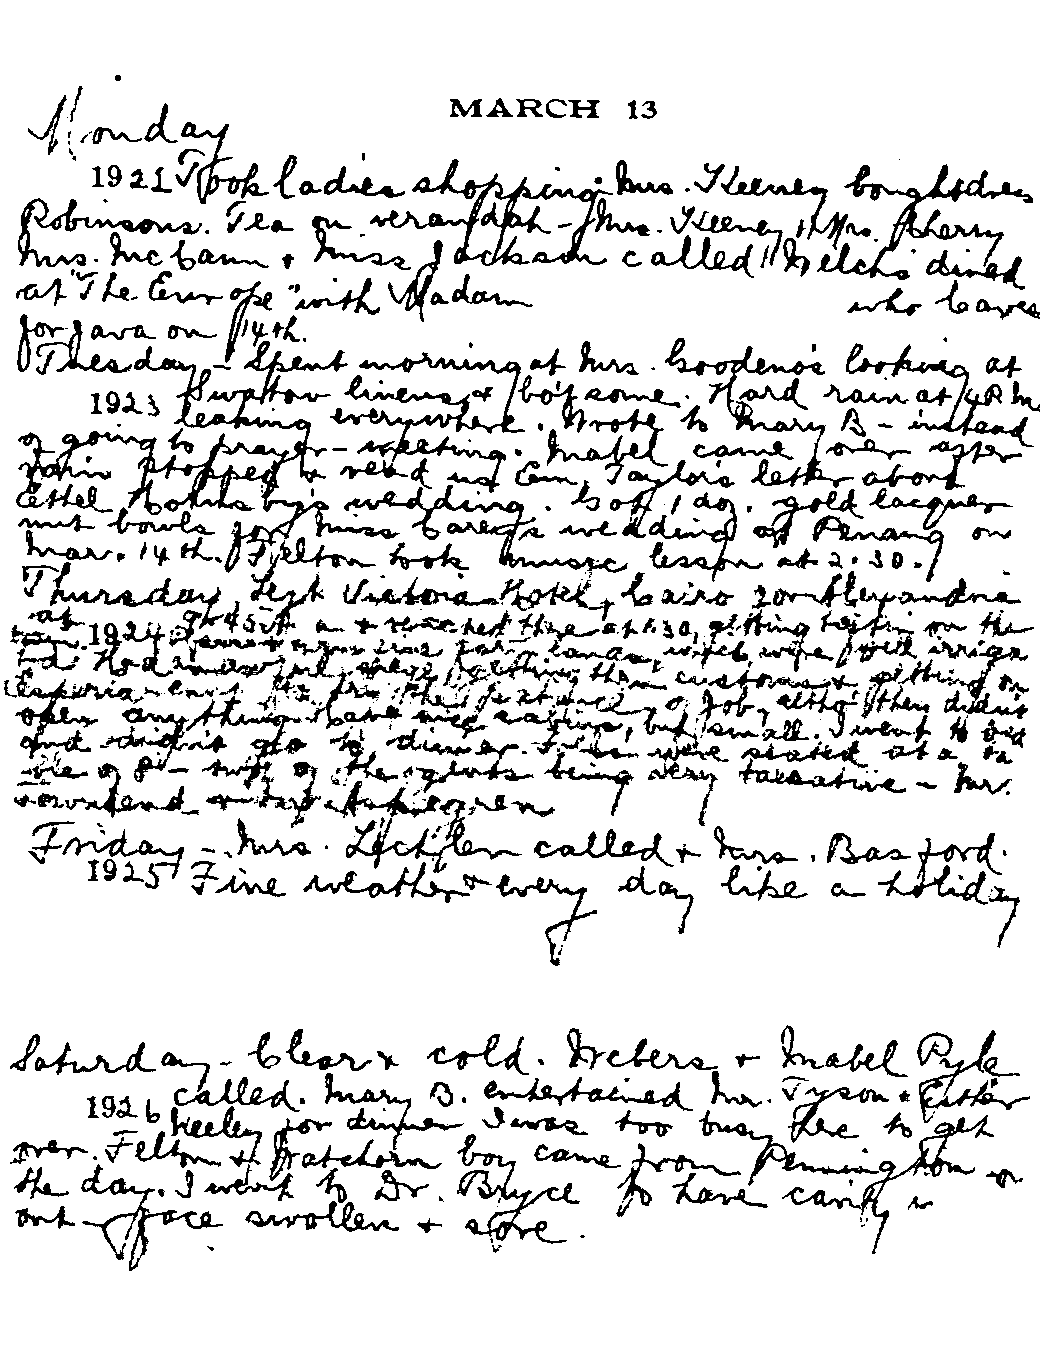 MARCH 13
Monday
1921 Took ladies shopping. Mrs. Keeney bought dress
Robinsons. Tea on verandah - Mrs. Keeney, Mrs. Cherry
Mrs. McCann + Miss Jackson called. Welchs dined
at "The Europe" with Madam who leaves
for Java on 14th.
Tuesday - Spent morning at Mrs. Goodeno's looking at
Swatow linens + bo't some. Hard rain at 4 P.M.
1923 leaking everywhere. Wrote to Mary B - instead
of going to prayer-meeting. Mabel came over after
rain stopped + read us Em. Taylor's letter about
Ethel Hornsby's wedding. Got 1 doz. gold lacquer
nut bowls for Miss Carey's wedding at Penang on
Mar. 14th. Felton took music lesson at 2.30.
Thursday Left Victoria Hotel, Cairo for Alexandria
at + reached there at 1.30, getting on the
1924
Had getting thru customs + getting on
Esperia of Job, altho' they didn't
open anything. Have nice cabins, but small. I went to bed
and didn't go to dinner. were seated at a ta
ble of 8 - two of the gents being very talkative - Mr.
Townsend +
Friday - Mrs. Lechflen called + Mrs. Basford.
1925 Fine weather + every day like a holiday
Saturday - Clear + cold. Webers + Mabel Pyle
called. Mary B. entertained Mr. Tyson + Esther
1926 Keeley for dinner I was too busy here to get
over. Felton + boy came from Pennington
the day. I went to Dr. Bryce to have cavity
out - face swollen + sore.